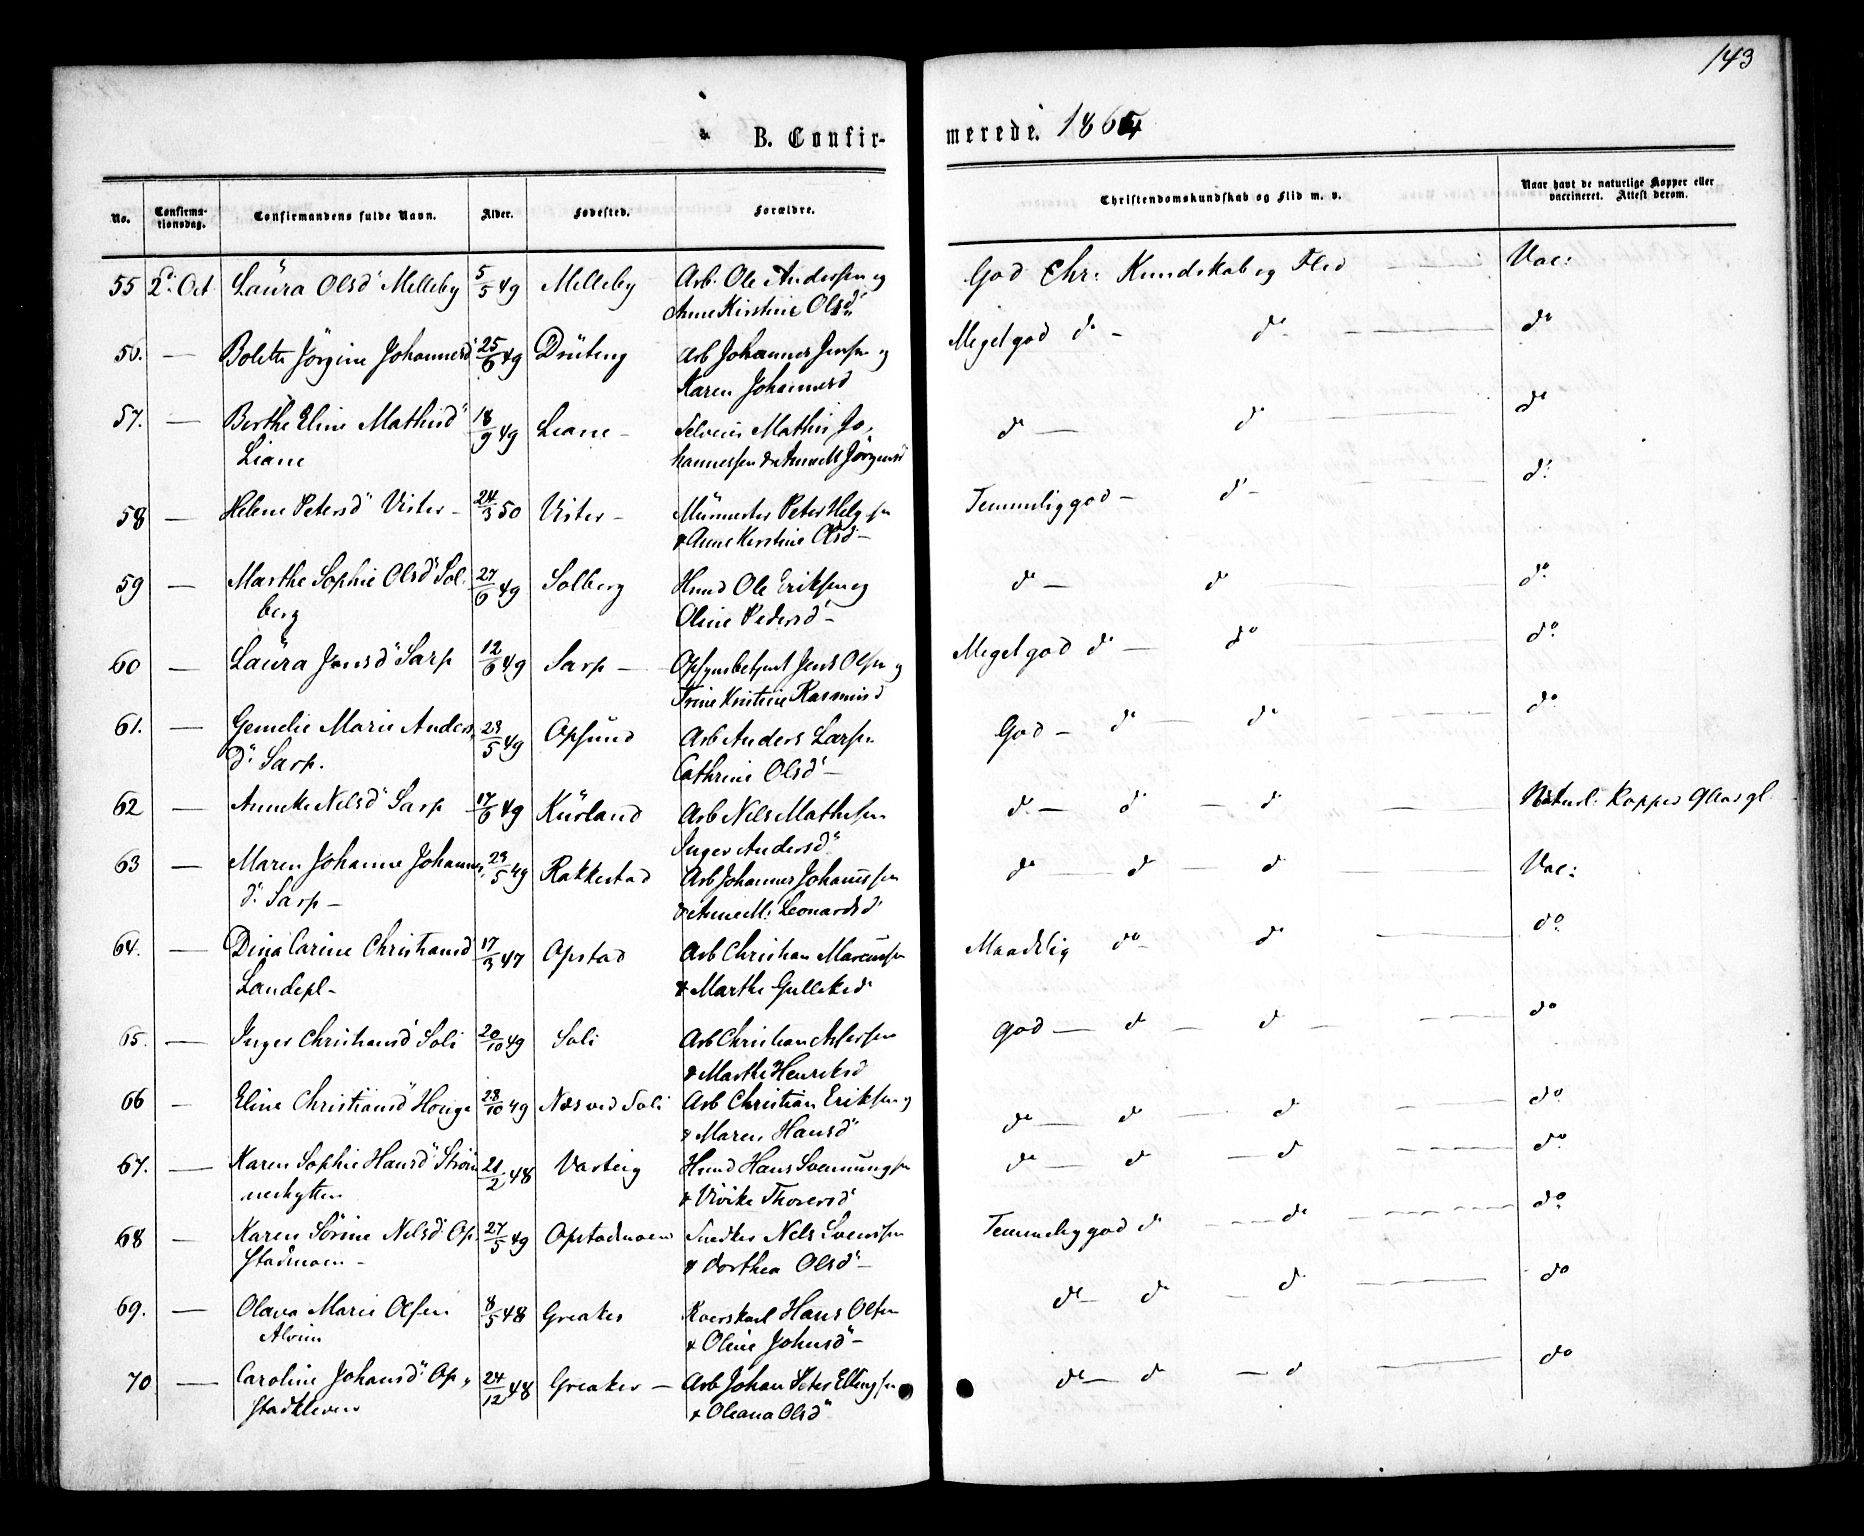 143
B. Confir- merede. 1864
No. Confirma-tionsdag. Confirmandens fulde Navn. Alder. Fødested. Forældre. Christendomskundskab og Flid m. v. Naar havt de naturlige Kopper eller vaccineret. Attest derom.
55 2. Oct Laura Olsd Melleby 5/5 49 Melleby Arb. Ole Andersen og God Chr: Kundskab og Flid Vac:
Anne Kirstine Olsd
56. — Bolette Jörgine Johannesd 25/6 49 Arb Johannes Jensen og Meget god do — do do
Karen Johannesd
57. — Berthe Eline Mathisd 18/9 49 Liane — Selveier Mathis Jo- do — do do
Liane hannessen & Jörgensd
58 — Helene Petersd Vister — 24/3 50 Vister — Peter Temmelig god — do do
& Anne Kirstine Olsd —
59 — Marthe Sophie Olsd Sol- 27/6 49 Solberg Husmd Ole Eriksen og do — do do
berg Oline Pedersd —
60 — Laura Jensd Sarp 12/6 49 Sarp — Opsynsbetjent Jens Olsen og Meget god do — do do
Trine Kristine Rasmusd
61. — Marie Anders- 29/5 49 Opsund Arb Anders Larsen God — do — do do
d. Sarp. Cathrine Olsd —
62 — Anneke Nilsd Sarp 17/6 49 Kurland Arb Nils Mathisen do — do — do Naturl: Kopper
Inger Andersd
63 — Maren Johanne Johannes- 29/5 49 Rakkestad Arb Johannes Johannssen do — do do Vac:
d. Sarp — & Anne M: Leonardsd
64. — Dina Carine Christiansd 17/3 47 Opstad Arb Christian Marcussen Maadelig do do do
Landepl — & Marthe Gulleksd
65. — Inger Christiansd Soli 20/10 49 Soli Arb Christian God — do — do — do
& Marthe Henriksd
66 — Eline Christiansd Houge 28/10 49 Næs ved Soli Arb Christian Eriksen og do — do — do do
& Maren Hansd
67. — Karen Sophie Hansd Ström- 21/2 48 Varteig Husmd Hans Svennungsen do — do — do do
neshytten & Vivike Thoresd
68 — Karen Sörine Nilsd Op- 27/5 49 Opstadmoen Snedker Nels Svendsen Temmelig god do do do
stadmoen — & Dorthea Olsd —
69. — Olava Marie Olsen 8/5 48 Greaker Hans Olsen do — do — do do
Alvim & Oline Johnsd —
70 — Caroline Johansd Op- 24/12 48 Greaker — Arb Johan Peter Ellingsen do — do — do do
stadkleven & Oleana Olsd